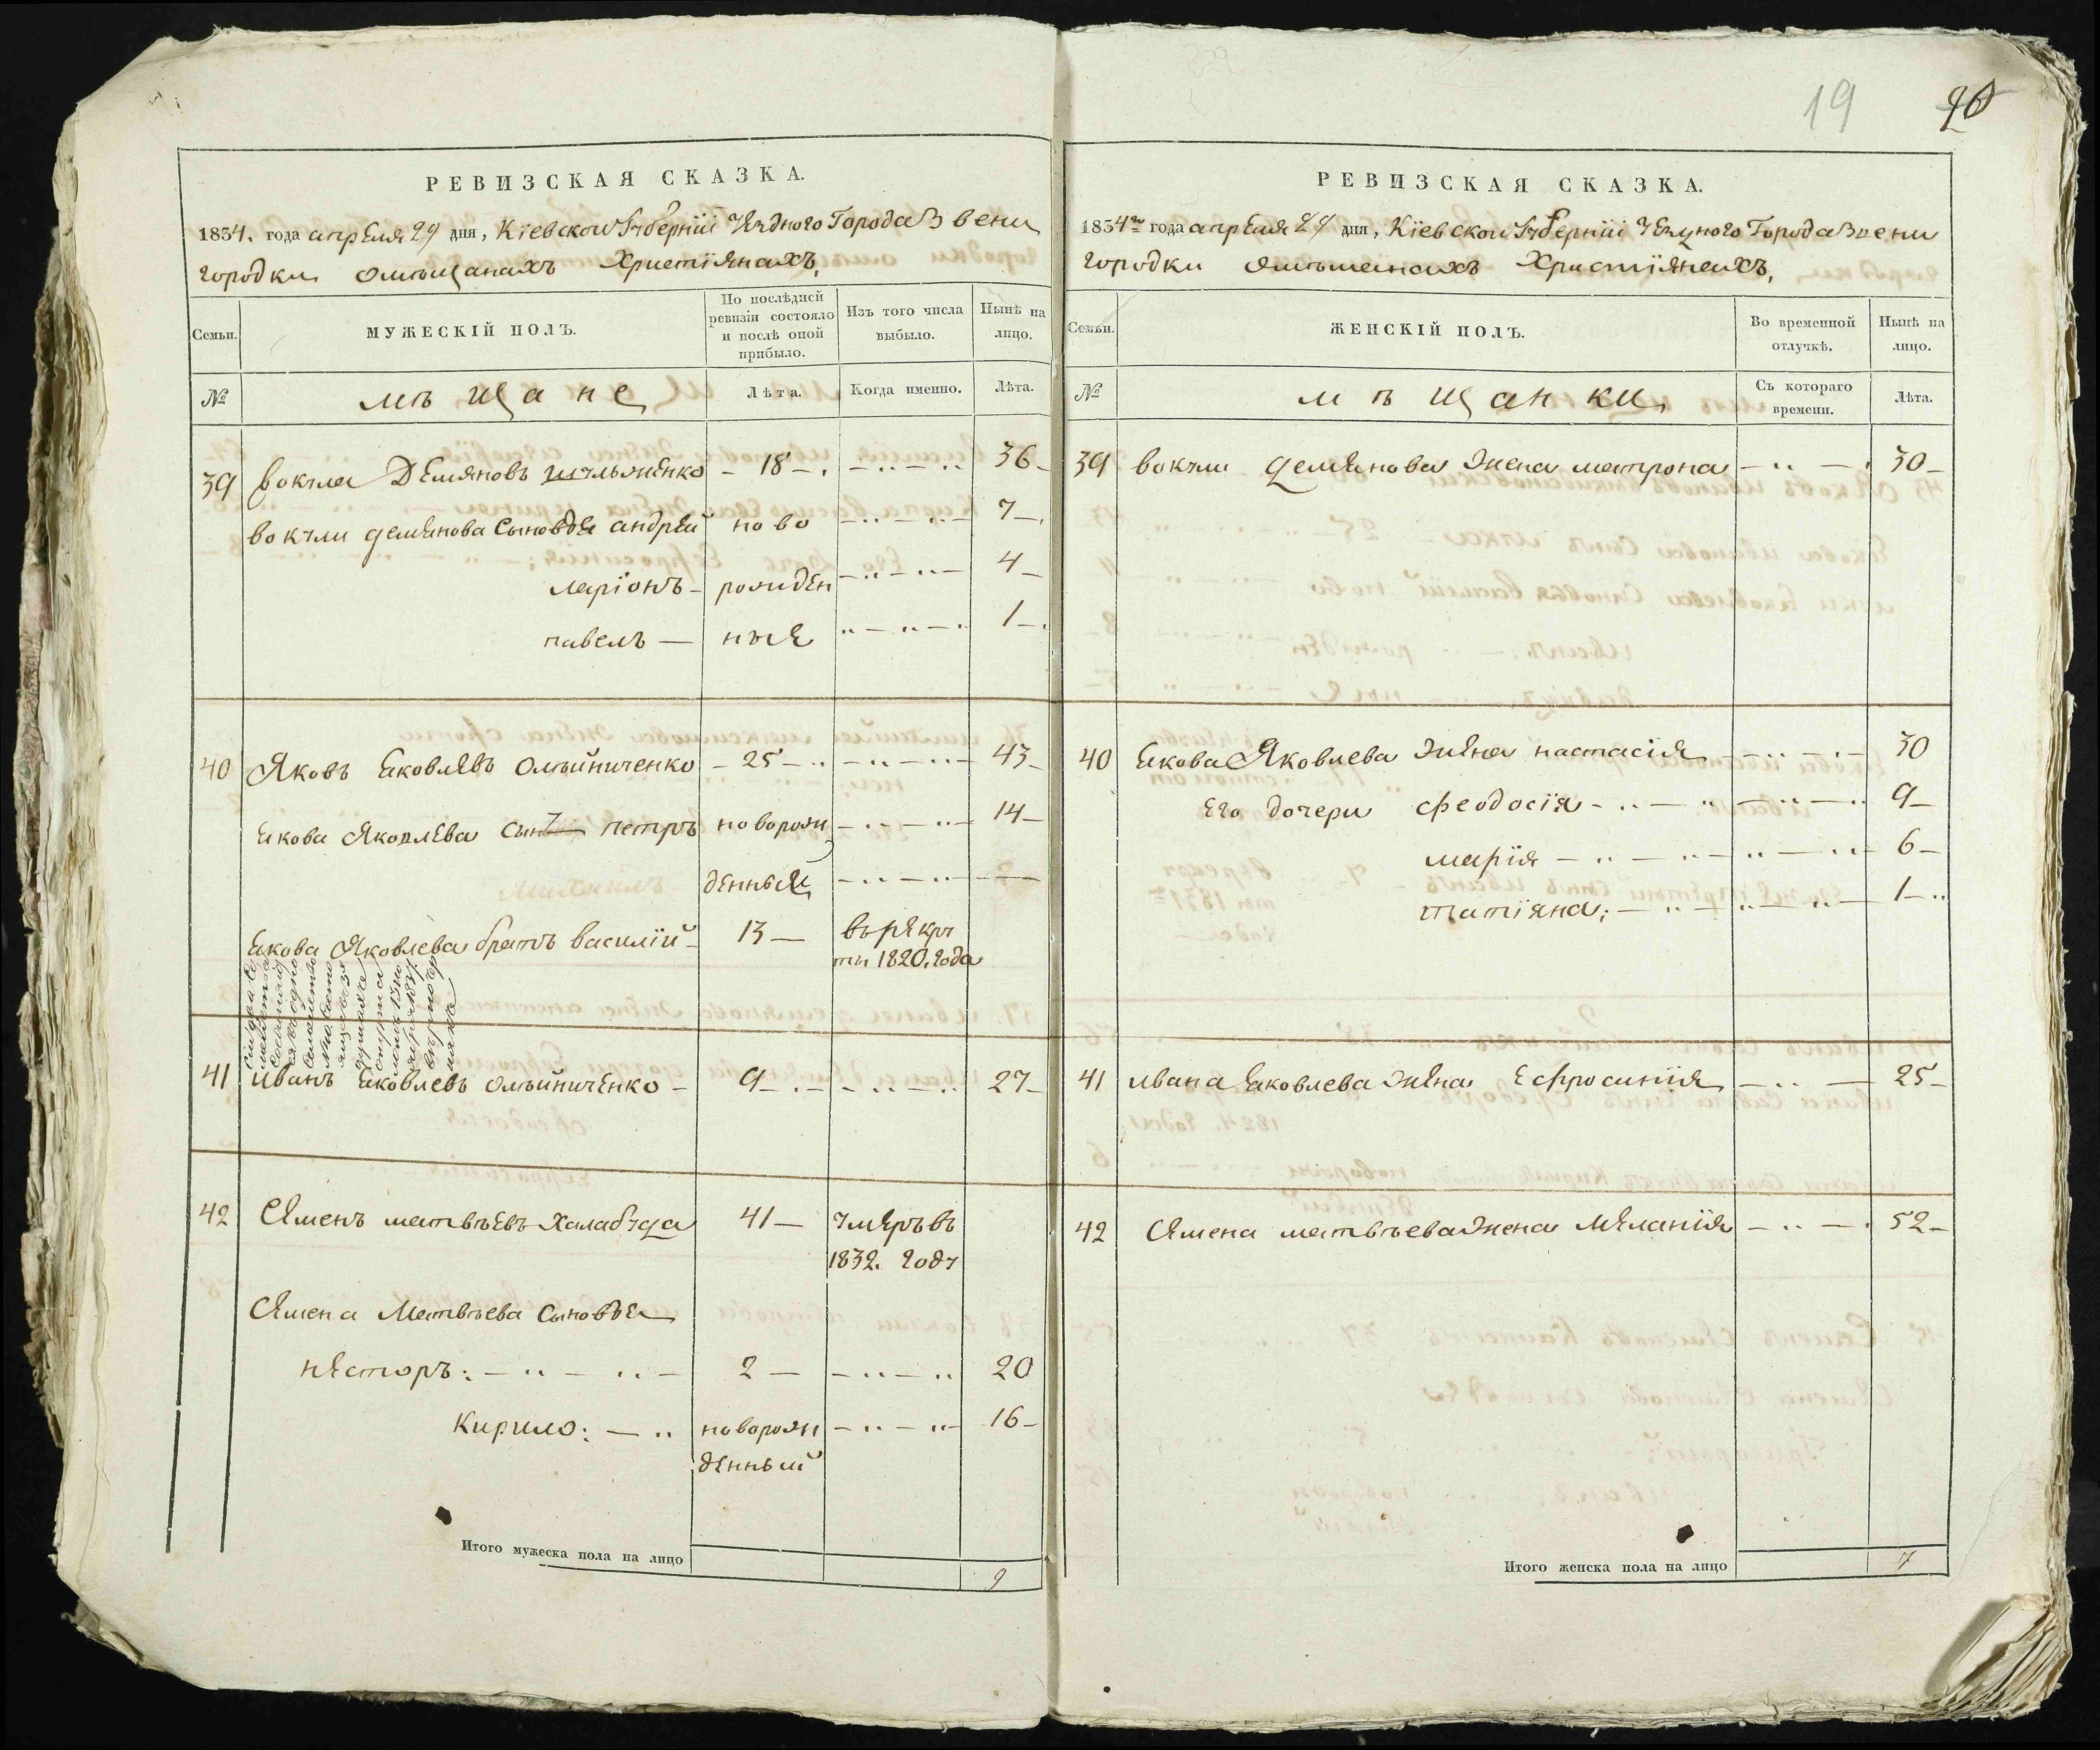 19 20
РЕВИЗСКАЯ СКАЗКА.
1834. года апреля 29 дня, Кіевской Губерніи Уезднаго Города Звени
городки омѣщанахъ Христіянахъ,
Семьи. МУЖЕСКІЙ ПОЛЪ. По послѣдней ревизіи состояло и послѣ оной прибыло. Изъ того числа выбыло. Нынѣ на лицо.
№ мѣщане Лѣта. Когда именно. Лѣта.
39 вокула Демяновъ – 18 – 36
вокули демянова сыновья андрей ново 7
ларіонъ – рожден 4
павелъ – ные 1
40 Яковъ Яковлевъ олыйниченко – 25 – 43
якова Яковлева сынъ петръ новорож 14
денный
якова Яковлева братъ василій – 13 – върекру
ты 1820. года
41 иванъ яковлевъ олыйниченко – 9 – 27
42 Семенъ матвѣевъ халабуда 41 – умеръвъ
1832. году
Семена Матвѣева сыновья
несторъ: – 2 – 20
кирило: – новорож 16
денный
Итого мужеска пола на лицо 9
РЕВИЗСКАЯ СКАЗКА.
1834го года апреля 29 дня, Кіевской Губерніи Уезного Города Звени
городки омѣщанахъ Христіянахъ,
Семьи. ЖЕНСКІЙ ПОЛЪ. Во временной отлучкѣ. Нынѣ на лицо.
№ мѣщанки Съ котораго времени. Лѣта.
39 вокули демянова жена матрона 30
40 якова Яковлева жена настасія 30
его дочери феодосія 9
марія 6
татіяна: 1
41 ивана яковлева жена Ефросинія 25
42 Семена матвѣева жена Меланія 52
Итого женска пола на лицо 7